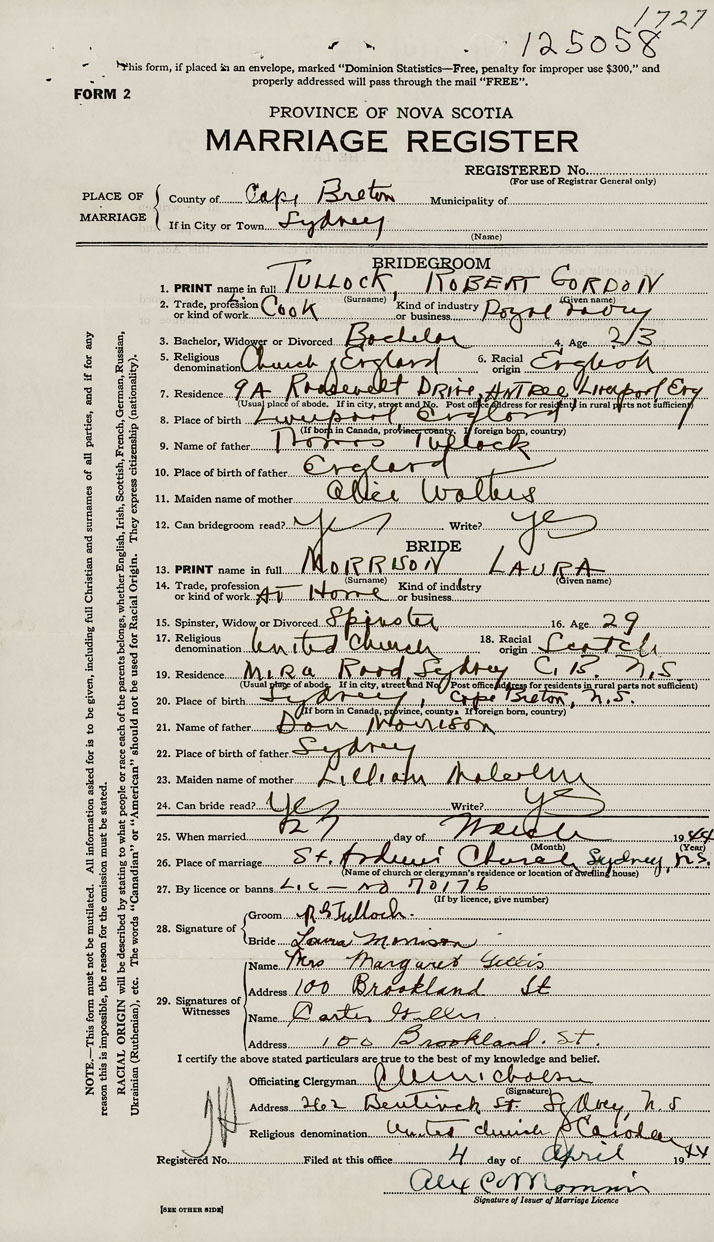 1727
125058
This form, if placed in an envelope, marked "Dominion Statistics—Free, penalty for improper use $300," and
properly addressed will pass through the mail "FREE".
FORM 2
PROVINCE OF NOVA SCOTIA
MARRIAGE REGISTER
REGISTERED No.
(For use of Registrar General only)
PLACE OF MARRIAGE
County of Cape Breton Municipality of
If in City or Town Sydney
(Name)
BRIDEGROOM
1. PRINT name in full TULLOCK, ROBERT GORDON
(Surname) (Given name)
2. Trade, profession or kind of work Cook Kind of industry or business Royal Navy
3. Bachelor, Widower or Divorced Bachelor 4. Age 23
5. Religious denomination Church of England 6. Racial origin English
7. Residence 9A Roosevelt Drive, Liverpool Eng
(Usual place of abode. If in city, street and No. Post office address for residents in rural parts not sufficient)
8. Place of birth Liverpool, England
(If born in Canada, province, county. If foreign born, country)
9. Name of father Thomas Tullock
10. Place of birth of father England
11. Maiden name of mother Alice Walters
12. Can bridegroom read? Yes Write? Yes
BRIDE
13. PRINT name in full MORRISON LAURA
(Surname) (Given name)
14. Trade, profession or kind of work At Home Kind of industry or business
15. Spinster, Widow or Divorced Spinster 16. Age 29
17. Religious denomination United Church 18. Racial origin Scotch
19. Residence Mira Road, Sydney C. B. N.S.
(Usual place of abode. If in city, street and No. Post office address for residents in rural parts not sufficient)
20. Place of birth Sydney, Cape Breton, N.S.
(If born in Canada, province, county. If foreign born, country)
21. Name of father Dan Morrison
22. Place of birth of father Sydney
23. Maiden name of mother Lillian Malcolm
24. Can bride read? Yes Write? Yes
25. When married 27 day of March 1944
(Month) (Year)
26. Place of marriage St. Andrews' Church Sydney, N.S.
(Name of church or clergyman's residence or location of dwelling house)
27. By licence or banns Lic – No 70176
(If by licence, give number)
28. Signature of
Groom R G Tulloch.
Bride Laura Morrison
29. Signatures of Witnesses
Name Mrs Margaret Gillis
Address 100 Brookland St
Name Carter Gillis
Address 100 Brookland. St.
I certify the above stated particulars are true to the best of my knowledge and belief.
Officiating Clergyman Nicholson
(Signature)
Address 262 Bentinck St. Sydney, N.S
Religious denomination United Church of Canada
Registered No. Filed at this office 4 day of April 1944
Alex C
Signature of Issuer of Marriage Licence
[SEE OTHER SIDE]
NOTE.—This form must not be mutilated. All information asked for is to be given, including full Christian and surnames of all parties, and if for any
reason this is impossible, the reason for the omission must be stated.
RACIAL ORIGIN will be described by stating to what people or race each of the parents belongs, whether English, Irish, Scottish, French, German, Russian,
Ukrainian (Ruthenian), etc. The words "Canadian" or "American" should not be used for Racial Origin. They express citizenship (nationality).